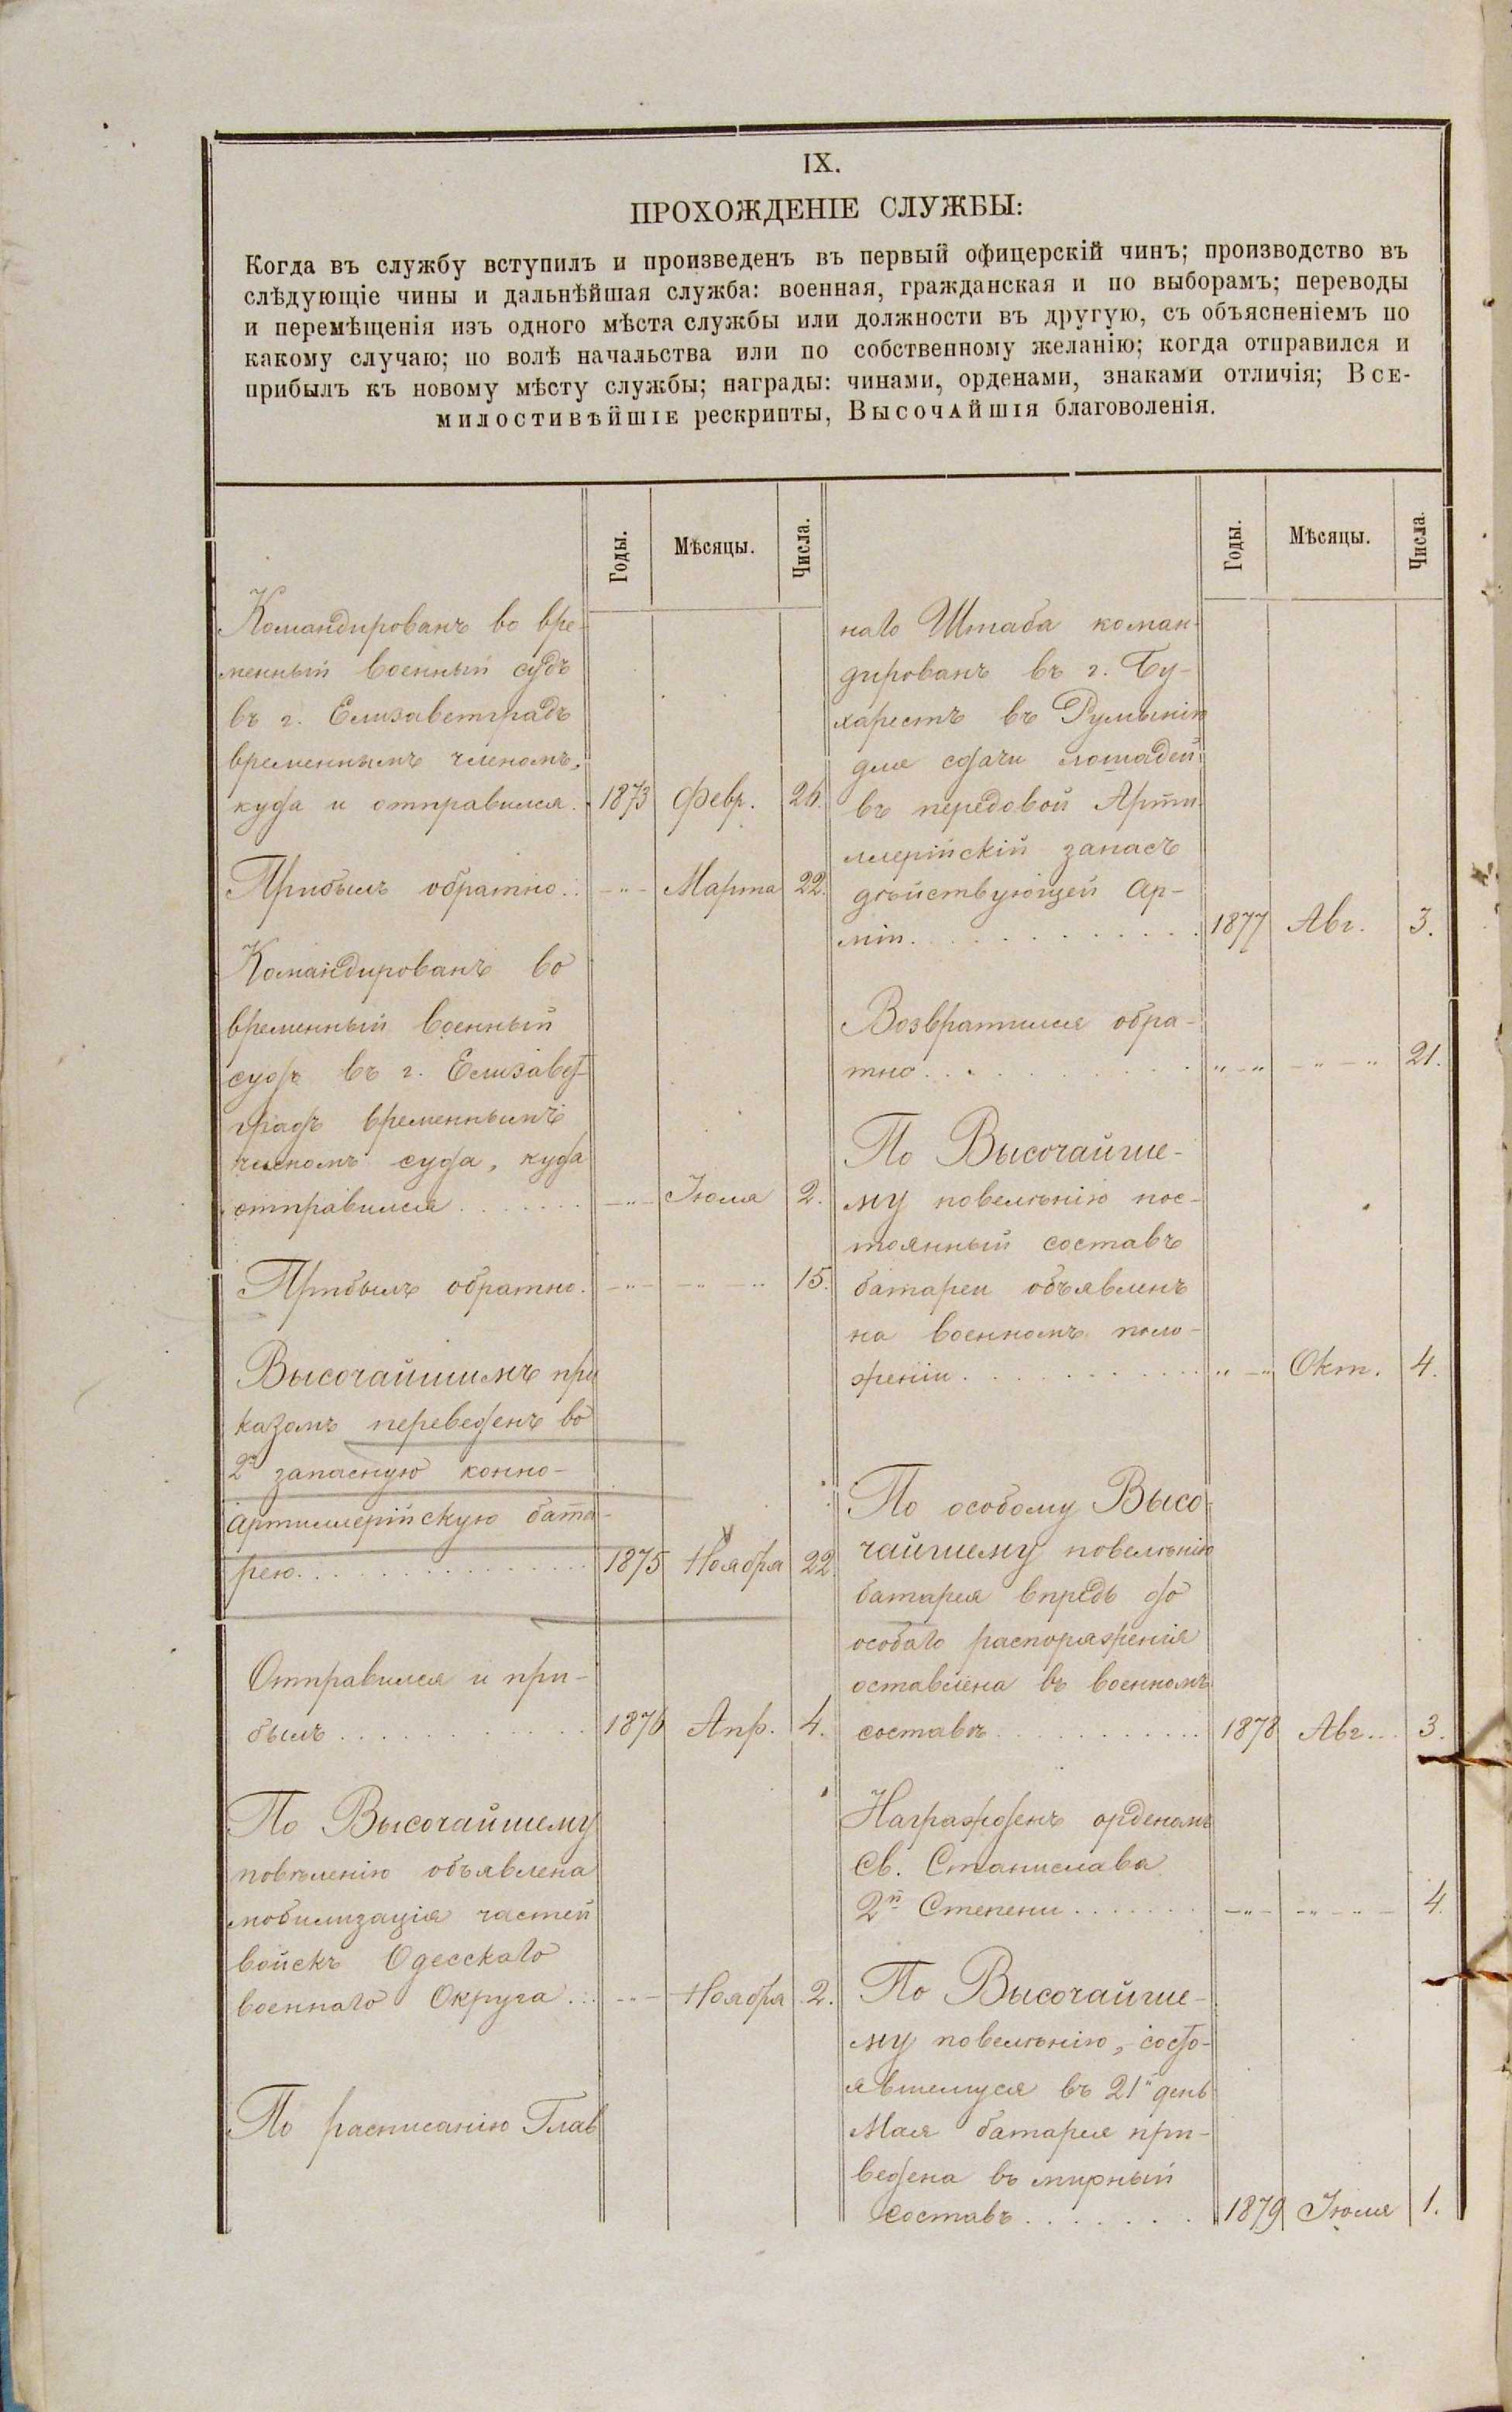 IX.
ПРОХОЖДЕНІЕ СЛУЖБЫ:
Когда въ службу вступилъ и произведенъ въ первый офицерскій чинъ; производство въ
слѣдующіе чины и дальнѣйшая служба: военная, гражданская и по выборамъ; переводы
и перемѣщенія изъ одного мѣста службы или должности въ другую, съ объясненіемъ по
какому случаю; по волѣ начальства или по собственному желанію; когда отправился и
прибылъ къ новому мѣсту службы; награды: чинами, орденами, знаками отличія; Все-
милостивѣйшіе рескрипты, Высочайшія благоволенія.
Годы. Мѣсяцы. Числа.
Командированъ во вре-
менный военный судъ
въ г. Елизаветградъ
временнымъ членомъ,
куда и отправился. 1873 Февр. 26.
Прибылъ обратно. —"— Марта 22.
Командированъ во
временный военный
судъ въ г. Елизавет-
градъ временнымъ
членомъ суда, куда
отправился . . . . . . —"— Іюля 2.
Прибылъ обратно. —"— —"—" 15.
Высочайшимъ при
казомъ переведенъ во
2ю запасную конно-
артиллерійскую бата-
рею. . . . . . . . . . . . . 1875 Ноября 22
Отправился и при-
былъ . . . . . . . . . . . 1876 Апр. 4.
По Высочайшему
повѣленію объявлена
мобилизація частей
войскъ Одесскаго
военнаго Округа . . —"— Ноября 2.
По расписанію Глав
Годы. Мѣсяцы. Числа.
наго Штаба коман-
дированъ въ г. Бу-
харестъ въ Румынію
для сдачи лошадей
въ передовой Арти-
ллерійскій запасъ
дѣйствующей Ар-
міи. . . . . . . . . . . . 1877 Авг. 3.
Возвратился обра-
тно. . . . . . . . . . . . "—" —"—" 21.
По Высочайше-
му повелѣнію пос-
тоянный составъ
батареи объявленъ
на военномъ поло-
женіи. . . . . . . . . . . "—" Окт. 4.
По особому Высо-
чайшему повелѣнію
батарея впредь до
особаго распоряженія
оставлена въ военномъ
составѣ . . . . . . . . . 1878 Авг. . . 3.
Награжденъ орденомъ
Св. Станислава
2й Степени . . . . . . . —"— —"—"— 4.
По Высочайше-
му повелѣнію, состо-
явшемуся въ 21й день
Мая батарея при-
ведена въ мирный
составъ . . . . . . . 1879 Іюля 1.